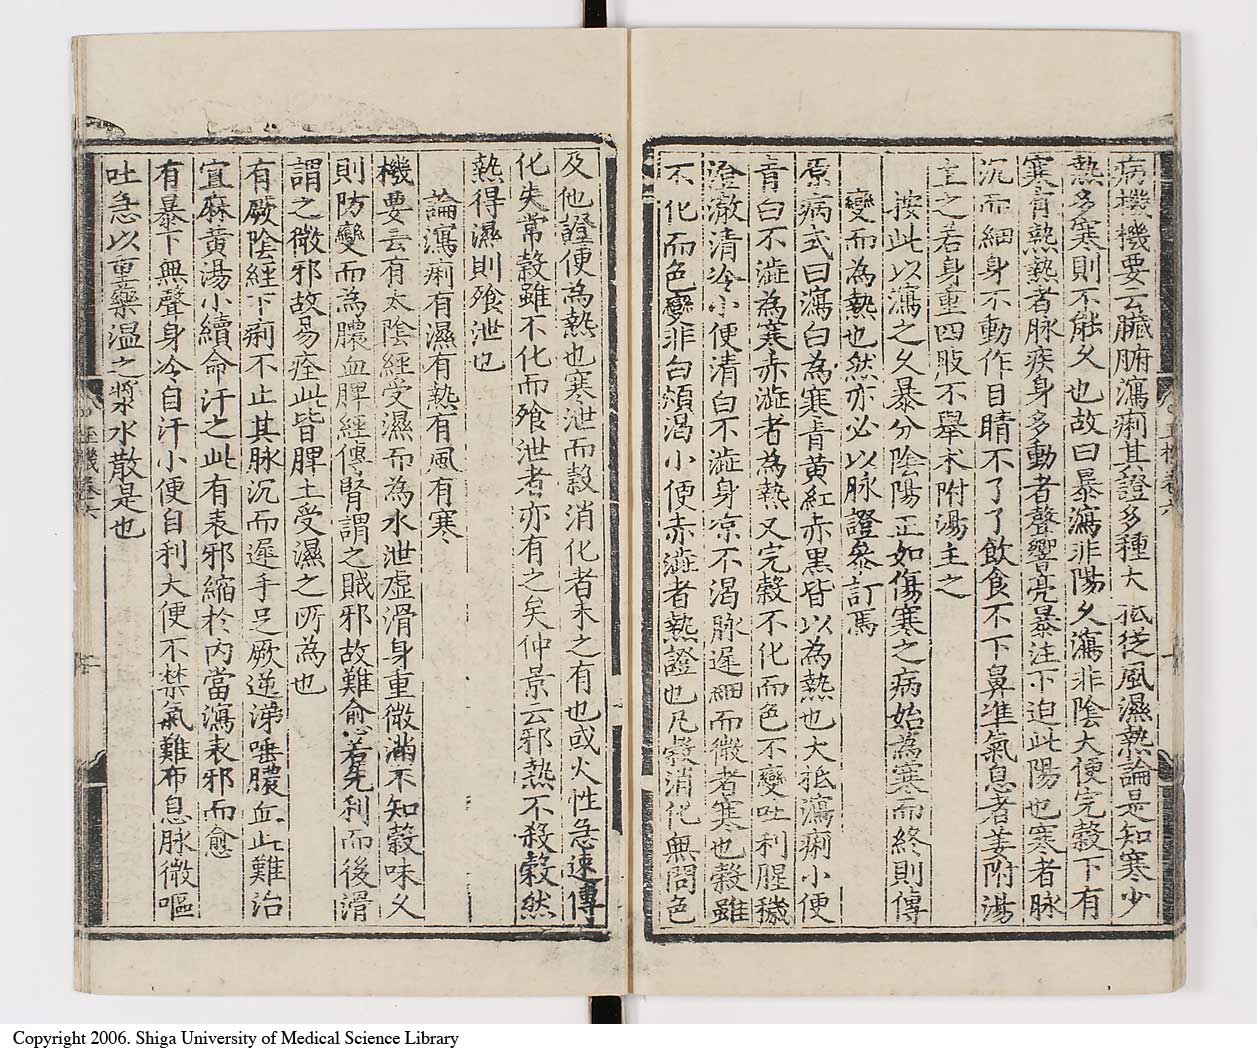 病機機要云臟腑瀉痢其證多種大抵從風濕熱論是知寒少
熱多寒則不能久也故曰暴瀉非陽久瀉非陰大便完穀下有
寒有熱熱者脉疾身多動者聲響亮暴注下迫此陽也寒者脉
沉而細身不動作目睛不了了飲食不下鼻准氣息者姜附湯
主之若身重四肢不舉朮附湯主之
按此以瀉之久暴分陰陽正如傷寒之病始為寒而終則傳
變而為熱也然亦必以脉證參訂焉
原病式曰瀉白為寒青黃紅赤黑皆以為熱也大抵瀉痢小便
青白不澁為寒赤澁者為熱又完穀不化而色不變吐利腥穢
澄澈清冷小便清白不澁身凉不渴脉遲細而微者寒也穀雖
不化而色變非白煩渴小便赤澁者熱證也凡穀消化無問色
及他證便為熱也寒泄而穀消化者未之有也或火性急速傳
化失常穀雖不化而飱泄者亦有之矣仲景云邪熱不殺穀然
熱得濕則飱泄也
論瀉痢有濕有熱有風有寒
機要云有太陰經受濕而為水泄虛滑身重微滿不知穀味久
則防變而為膿血脾經傳腎謂之賊邪故難愈若先利而後滑
謂之微邪故易痊此皆脾土受濕之所為也
有厥陰經下痢不止其脉沉而遲手足厥逆涕唾膿血此難治
宜麻黃湯小續命汗之此有表邪縮於內當瀉表邪而愈
有暴下無聲身冷自汗小便自利大便不禁氣難布息脉微嘔
吐急以重藥溫之漿水散是也
卷六
Copyright 2006. Shiga University of Medical Science Library